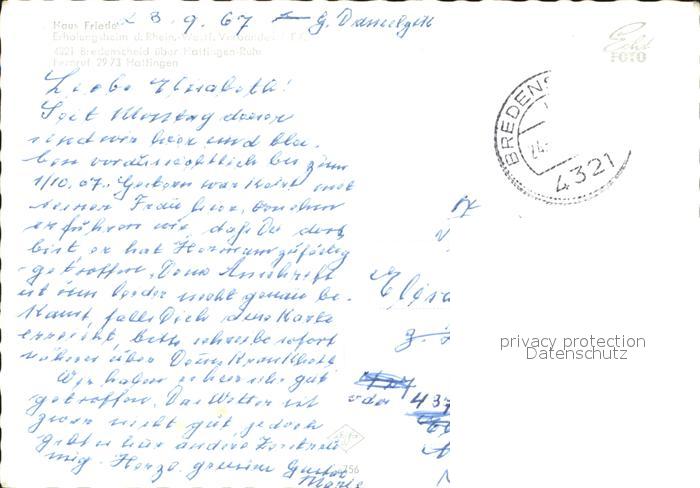 23.9.67
Haus Friede
Erholungsheim d. Rhein.-Westf. Verbandes
4321 Bredenscheid über Hattingen-Ruhr
Fernruf 2973 Hattingen
Echt
FOTO
Liebe Elisabeth!
Seit Montag
sind wir hier und blei-
ben voraussichtlich bis zum
1/10. 67. Gestern war Kurt mit
seiner Frau hier, von ihm
erfuhren wir, daß Du dort
bist, er hat Hermann zufällig
getroffen. Deine Anschrift
ist ihm leider nicht genau be-
kannt, falls Dich diese Karte
erreicht, bitte schreibe sofort
näheres über Deine Krankheit
Wir haben es hier sehr gut
getroffen. Das Wetter ist
zwar nicht gut, jedoch
gibt es hier andere Zerstreu-
ung. Herzl. grüssen Gustav
Marie
BREDENS
24.
4321
Elisa
oder 437
356
privacy protection
Datenschutz